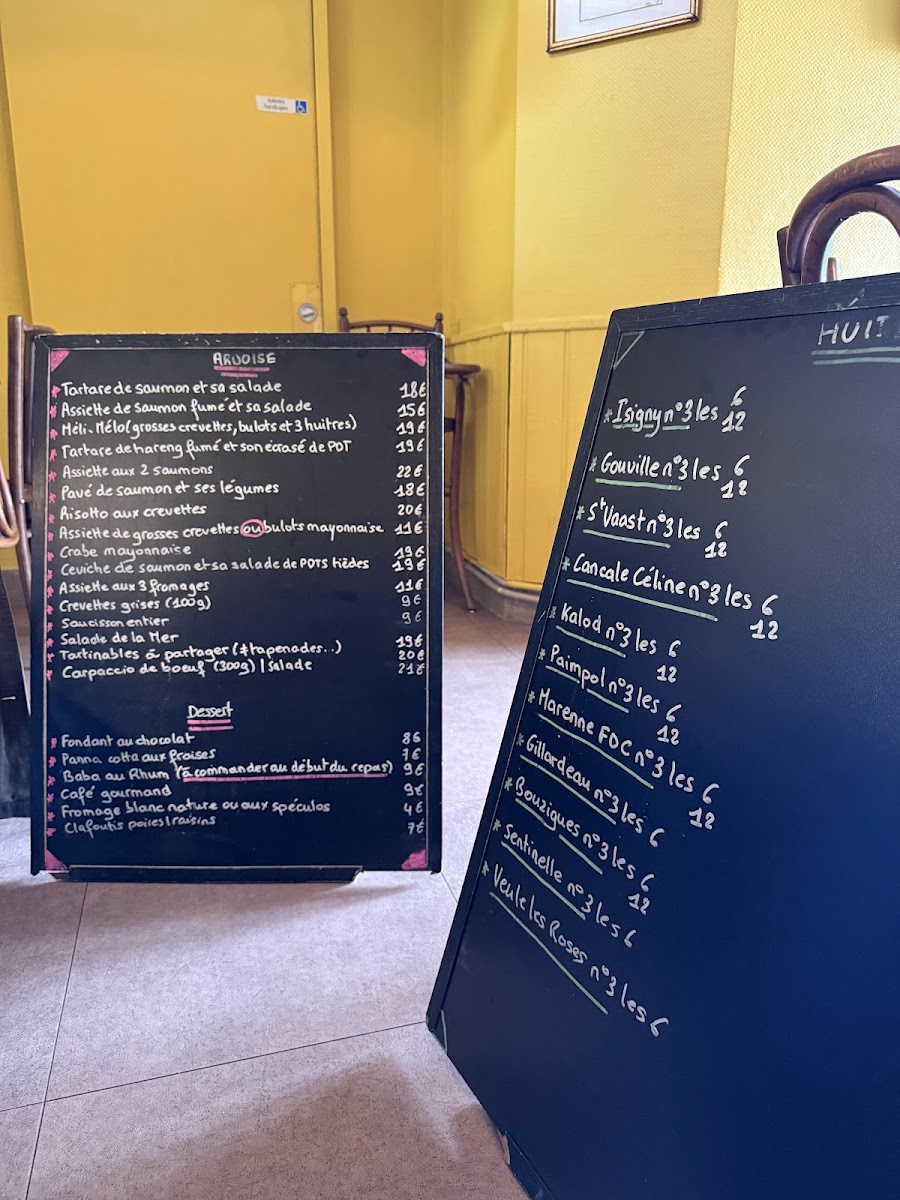 toilettes
handicapés
ARDOISE
Tartare de saumon et sa salade 18€
Assiette de saumon fumé et sa salade 15€
Méli-Mélo (grosses crevettes, bulots et 3 huitres) 19€
Tartare de hareng fumé et son écrasé de PDT 19€
Assiette aux 2 saumons 22€
Pavé de saumon et ses légumes 18€
Risotto aux crevettes 20€
Assiette de grosses crevettes ou bulots mayonnaise 11€
Crabe mayonnaise 19€
Ceviche de saumon et sa salade de PDTS tièdes 19€
Assiette aux 3 fromages 11€
Crevettes grises (100g) 9€
Saucisson entier 9€
Salade de la Mer 19€
Tartinables à partager (≠tapenades..) 20€
Carpaccio de boeuf (300g) / salade 21€
Dessert
Fondant au chocolat 8€
Panna cotta aux fraises 7€
Baba au Rhum (à commander au début du repas) 9€
Café gourmand 9€
Fromage blanc nature ou aux spéculos 4€
Clafoutis poires / raisins 7€
HUIT
Isigny n°3 les 6
12
Gouville n°3 les 6
12
St Vaast n°3 les 6
12
Cancale Céline n°3 les 6
12
Kalod n°3 les 6
12
Paimpol n°3 les 6
12
Marenne FDC n°3 les 6
12
Gillardeau n°3 les 6
Bouzigues n°3 les 6
12
Sentinelle n°3 les 6
Veule les Roses n°3 les 6